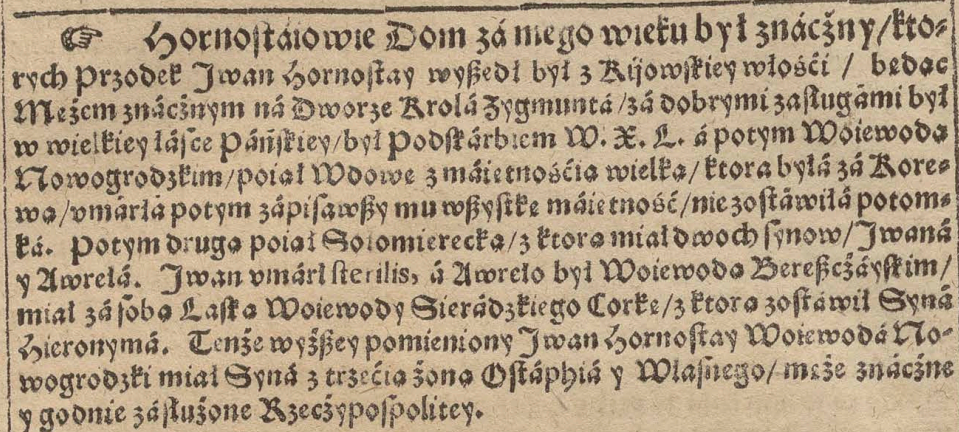 ☞ Hornostáiowie Dom zá mego wieku był znácżny/ kto-
rych Przodek Jwan Hornostay wyßedł był z Kijowskiey włośći / będąc
Mężem znácżnym ná Dworze Krolá Zygmuntá/ zá dobrymi zasługámi był
w wielkiey łásce Páńskiey/ był Podskárbiem W. X. L. á potym Woiewodą
Nowogrodzkim/ poiął Wdowę z máiętnośćią wielką/ ktora byłá zá Kore-
wą/ vmárłá potym zápisawßy mu wßystkę máiętność/ nie zostáwiłá potom-
ká. Potym drugą poiął Sołomierecką/ z ktorą miał dwoch synow/ Jwaná
y Awrełá. Jwan vmárł sterilis, á Awreło był Woiewodą Bereßcżáyskim/
miał zá sobą Láská Woiewody Sierádzkiego Corkę/ z ktorą zostáwił Syná
Hieronymá. Tenże wyżßey pomieniony Jwan Hornostay Woiewodá No-
wogrodzki miał Syná z trzećią żoną Ostáphiá y Własnego/ męże znácżne
y godnie zásłużone Rzecżypospolitey.